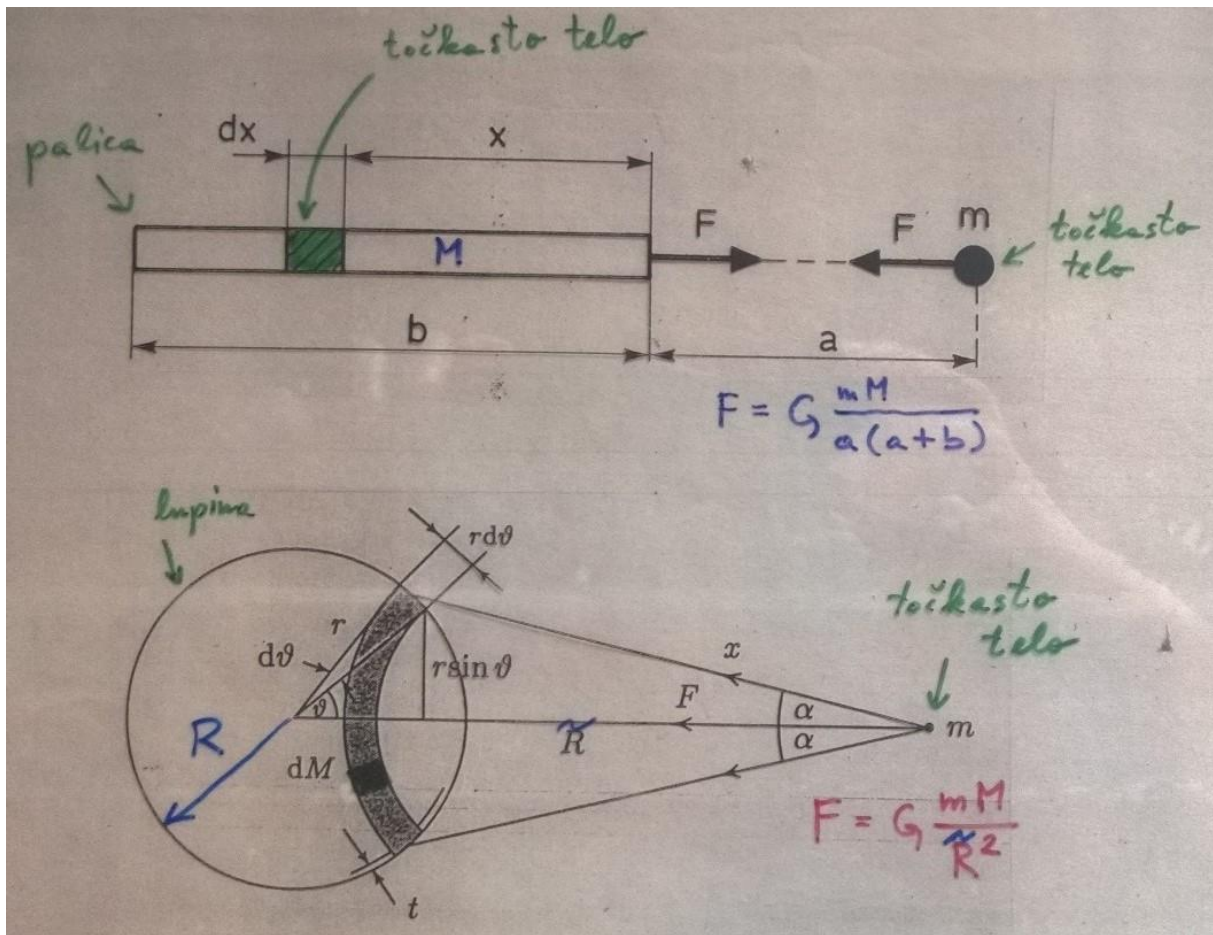 točkasto telo
palica
dx
x
M
F
F
m
točkasto
telo
b
a
F = G mM / a(a+b)
lupina
rdϑ
r
dϑ
ϑ
r sin ϑ
točkasto
telo
x
F
α
α
m
R
R̃
dM
F = G mM / R̃²
t